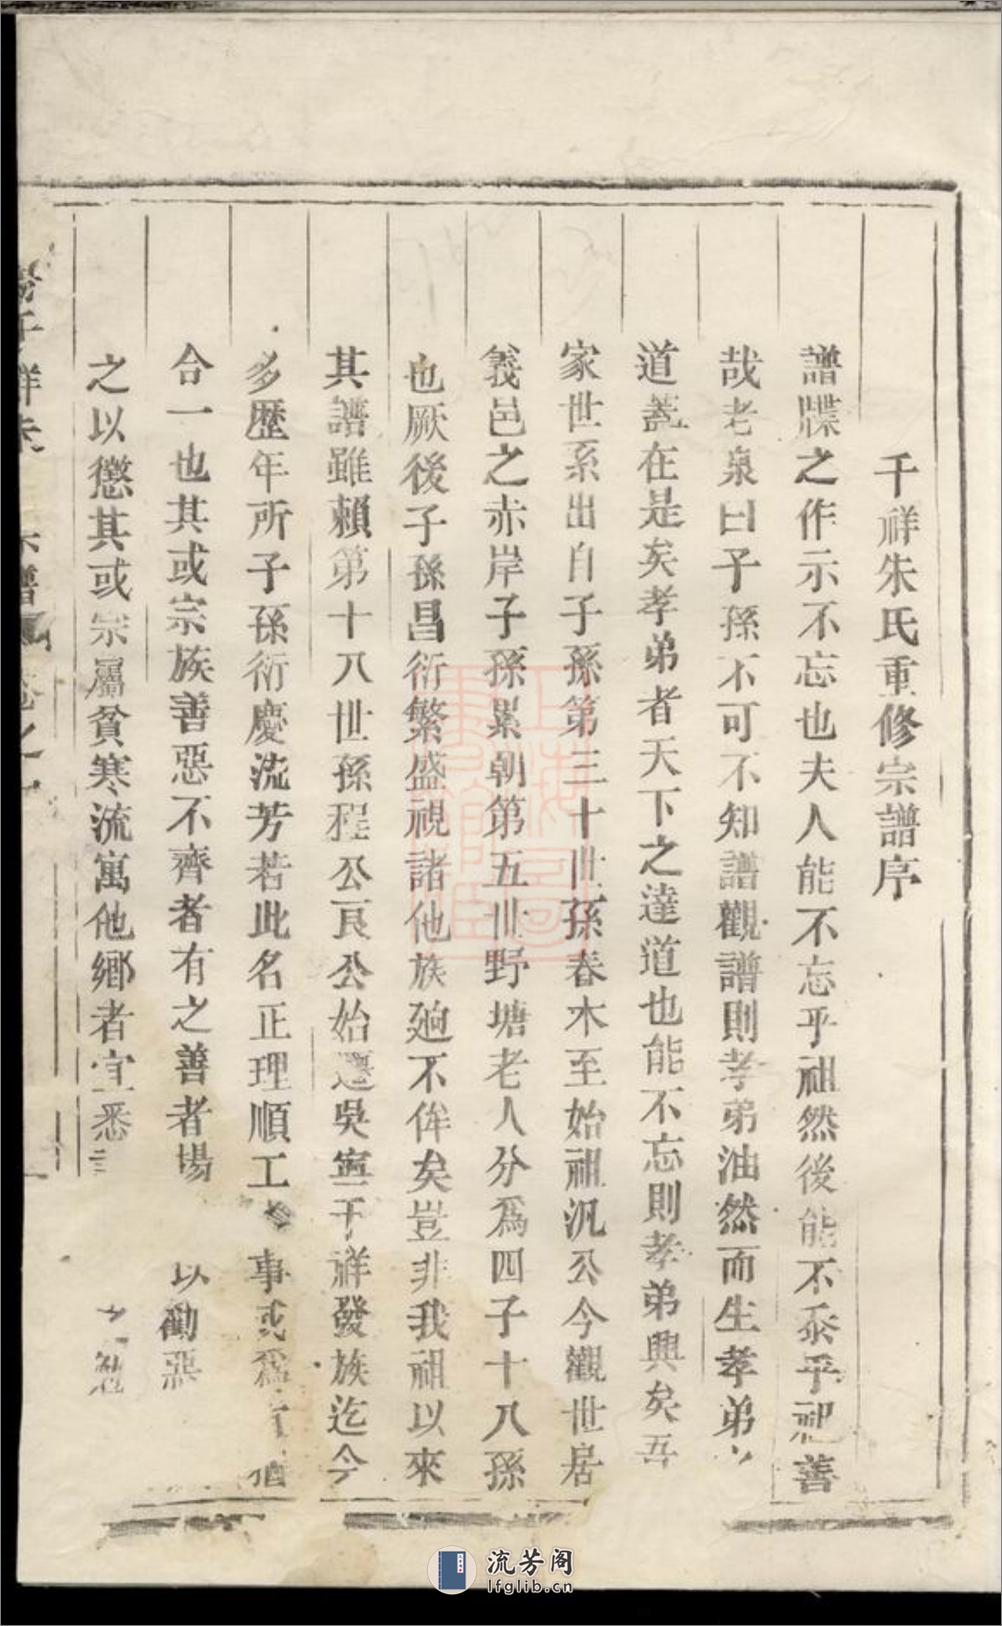 千祥朱氏重修宗譜序
譜牒之作示不忘也夫人能不忘乎祖然後能不忝乎祀善
哉老泉曰子孫不可不知譜觀譜則孝弟油然而生孝弟
道蓋在是矣孝弟者天下之達道也能不忘則孝弟興矣吾
家世系出自子孫第三十世孫春木至始祖汎公今觀世居
義邑之赤岸子孫累朝第五世野塘老人分爲四子十八孫
也厥後子孫昌衍繁盛視諸他族迥不侔矣豈非我祖以來
其譜雖賴第十八世孫程公艮公始遷吳寧千祥發族迄今
多歷年所子孫衍慶流芳若此名正理順工 事或爲
合一也其或宗族善惡不齊者有之善者揚 以勸惡
之以懲其或宗屬貧寒流寓他鄉者宜悉
千祥朱 宗譜 卷之一
流芳阁
lfglib.cn